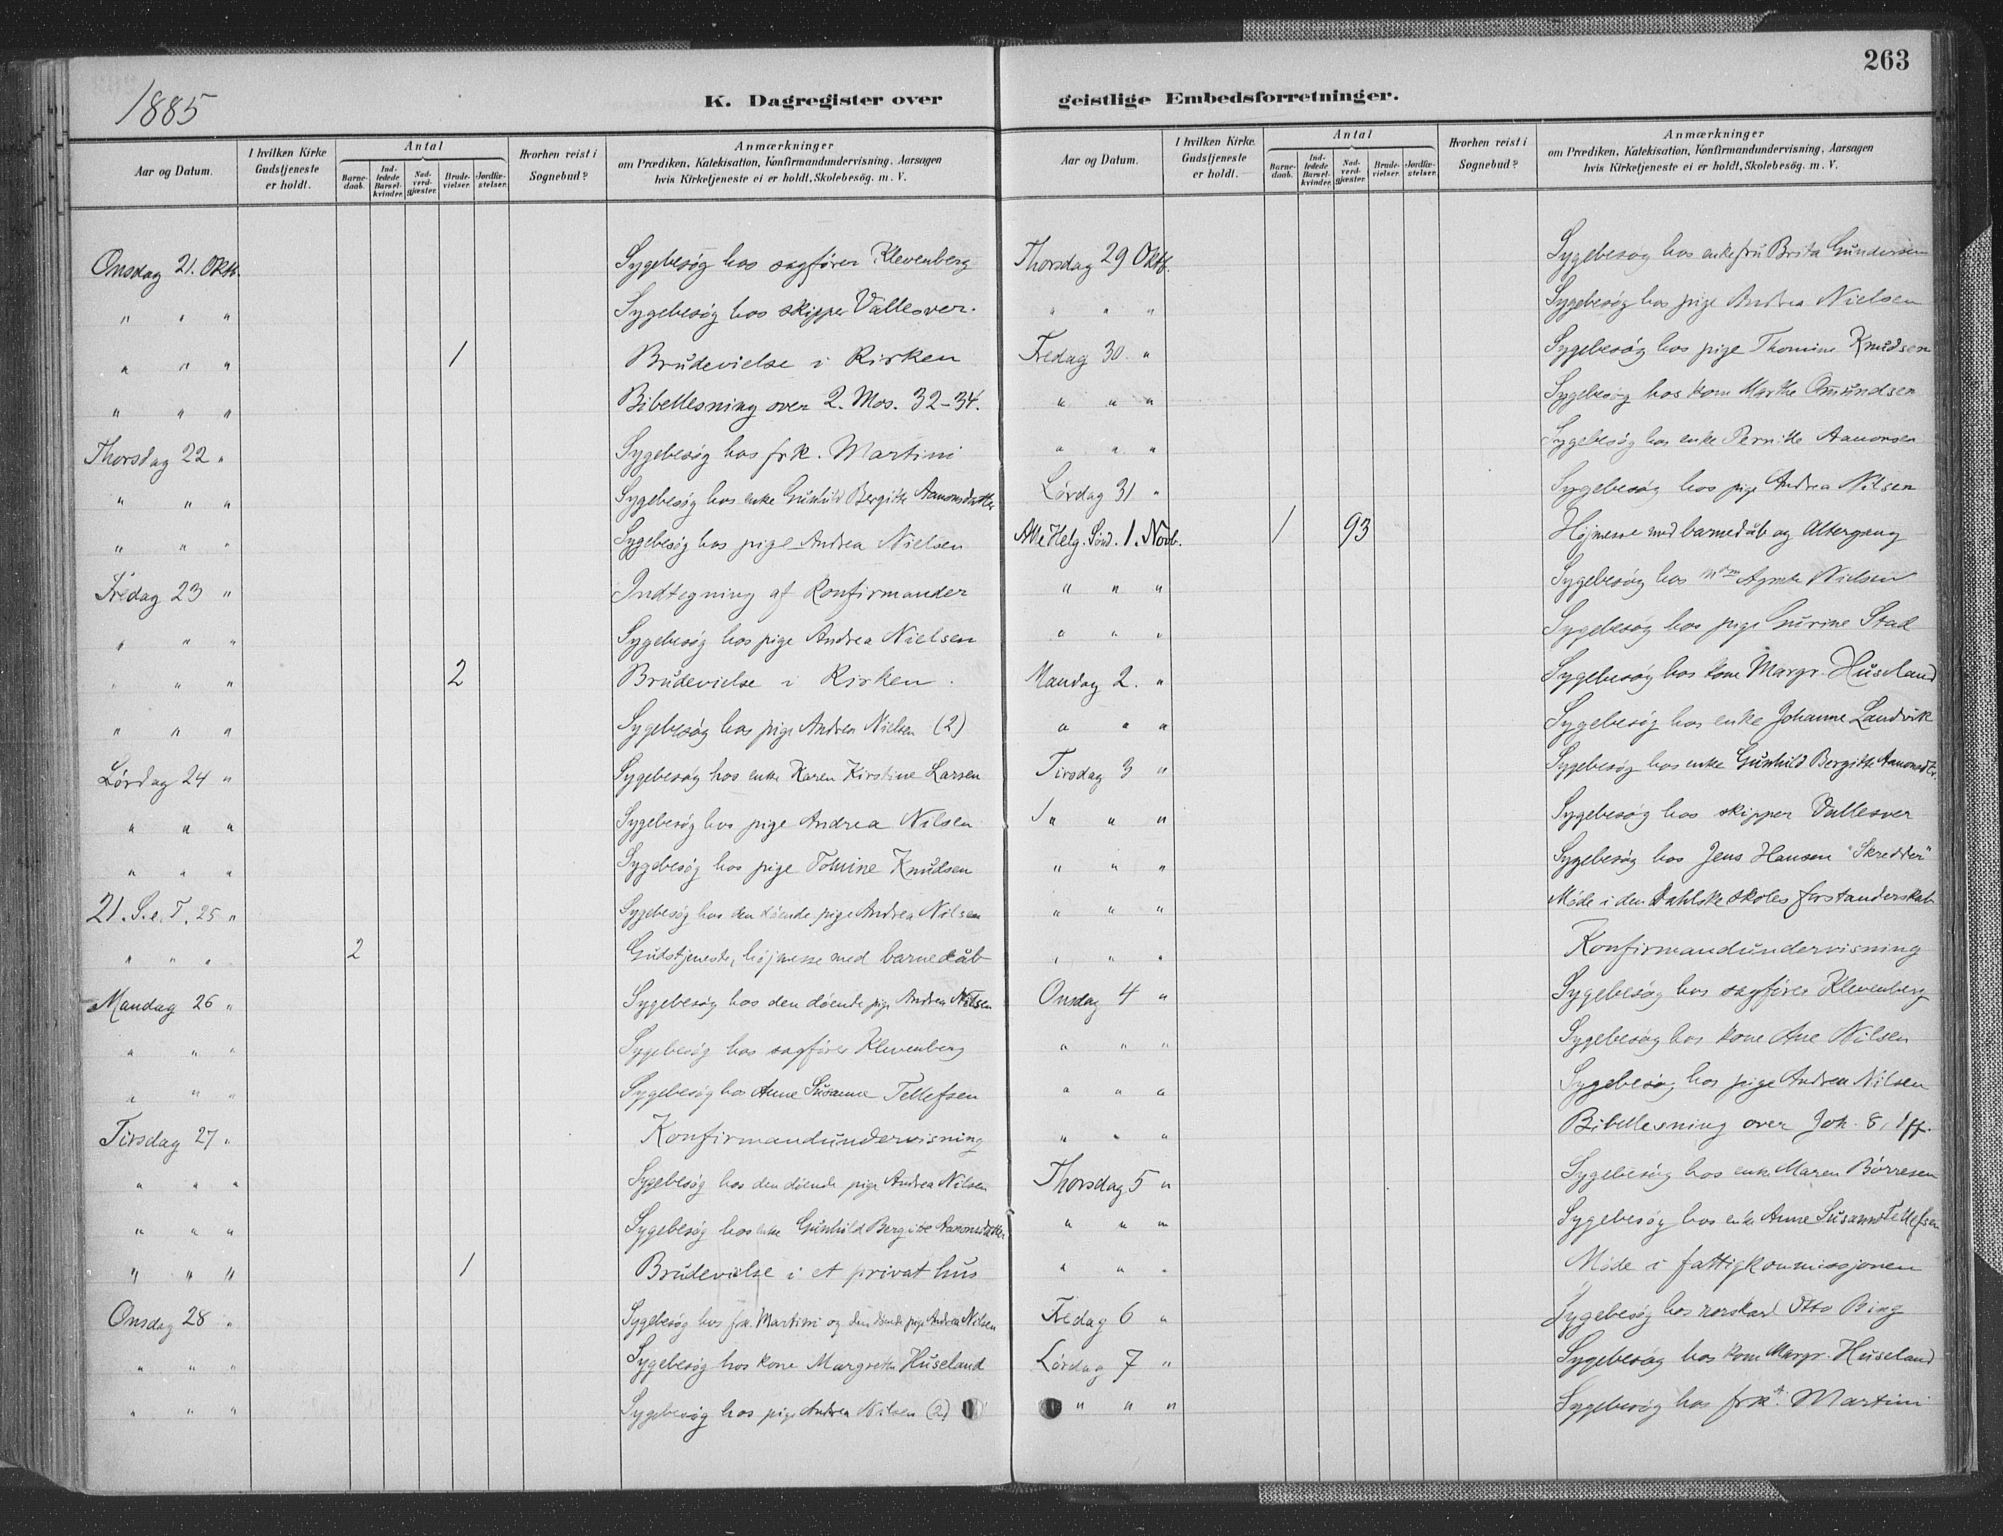 263
1885
K. Dagregister over geistlige Embedsforretninger.
Aar og Datum. | I hvilken Kirke Gudstjeneste er holdt. | Antal | Barne-daab. | Ind-ledede Barsel-kvinder. | Nad-verd-gjæster. | Brude-vielser. | Jordfæ-stelser. | Hvorhen reist i Sognebud? | Anmærkninger om Prædiken, Katekisation, Konfirmandundervisning, Aarsagen hvis Kirketjeneste ei er holdt, Skolebesøg. m. V.
Onsdag 21. Oktb. Sygebesøg hos sagfører Klevenberg
" " " Sygebesøg hos skipper Vallesver.
" " " 1 Brudevielse i Kirken
" " " Bibellesning over 2. Mos. 32-34.
Thorsdag 22 " Sygebesøg hos frk. Martini
" " " Sygebesøg hos enke Gunhild Bergitte Aanonsdatter
" " " Sygebesøg hos pige Andrea Nielsen
Fredag 23 " Indtegning af Konfirmander
" " " Sygebesøg hos pige Andrea Nielsen
" " " 2 Brudevielse i Kirken.
" " " Sygebesøg hos pige Andrea Nielsen (2)
Lørdag 24 " Sygebesøg hos enke Karen Kirstine Larsen
" " " Sygebesøg hos pige Andrea Nilsen
" " " Sygebesøg hos pige Tomine Knudsen
21. S. e. T. 25 " Sygebesøg hos den døende pige Andrea Nilsen
" " " 2 Gudstjeneste, højmesse med barnedåb
Mandag 26 " Sygebesøg hos den døende pige Andrea Nilsen
" " " Sygebesøg hos sagfører Klevenberg
" " " Sygebesøg hos Anne Susanne Tellefsen
Tirsdag 27 " Konfirmandundervisning
" " " Sygebesøg hos den døende pige Andrea Nilsen
" " " Sygebesøg hos enke Gunhild Bergitte Aanonsdatter
" " " 1 Brudevielse i et privat hus
Onsdag 28 " Sygebesøg hos frk. Martini og den døende pige Andrea Nilsen
" " " Sygebesøg hos kone Margrethe Huseland
" " " Sygebesøg hos pige Andrea Nilsen (2)
Aar og Datum. | I hvilken Kirke Gudstjeneste er holdt. | Antal | Barne-daab. | Ind-ledede Barsel-kvinder. | Nad-verd-gjæster. | Brude-vielser. | Jordfæ-stelser. | Hvorhen reist i Sognebud? | Anmærkninger om Prædiken, Katekisation, Konfirmandundervisning, Aarsagen hvis Kirketjeneste ei er holdt, Skolebesøg. m. V.
Thorsdag 29 Oktb. Sygebesøg hos enkefru Brita Gundersen
" " " Sygebesøg hos pige Andrea Nielsen
Fredag 30. " Sygebesøg hos pige Thomine Knudsen
" " " Sygebesøg hos kone Marthe Omundsen
" " " Sygebesøg hos enke Pernille Aanonsen
Lørdag 31 " Sygebesøg hos pige Andrea Nilsen
Alle Helg. Sønd. 1. Novb. 1 93 Højmesse med barnedåb og Altergang
" " " Sygebesøg hos Nielsen
" " " Sygebesøg hos pige Gurine Stad
Mandag 2. " Sygebesøg hos kone Margr. Huseland
" " " Sygebesøg hos enke Johanne Landvik
Tirsdag 3 " Sygebesøg hos enke Gunhild Bergitte Aanonsdtr.
" " " Sygebesøg hos skipper Vallesver
" " " Sygebesøg hos Jens Hansen "Skredder"
" " " Møde i den Dahlske skoles forstanderskab
" " " Konfirmandundervisning
Onsdag 4 " Sygebesøg hos sagfører Klevenberg
" " " Sygebesøg hos kone Ane Nilsen
" " " Sygebesøg hos pige Andrea Nilsen
" " " Bibellesning over Joh. 8, 1 ff.
Thorsdag 5 " Sygebesøg hos enke Maren Børresen
" " " Sygebesøg hos enke Anne Susanne Tellefsen
" " " Møde i fattigkommissjonen
Fredag 6 " Sygebesøg hos Otto Bing
Lørdag 7 " Sygebesøg hos kone Margr. Huseland
" " " Sygebesøg hos frk. Martini